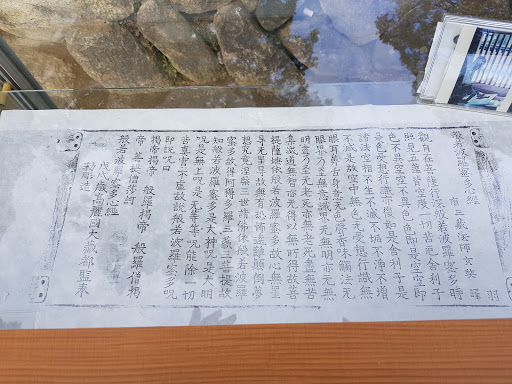 般若波羅蜜多心經 羽
唐三藏法師玄奘 譯
觀自在菩薩行深般若波羅蜜多時
照見五蘊皆空度一切苦厄舍利子
色不異空空不異色色即是空空即
是色受想行識亦復如是舍利子是
諸法空相不生不滅不垢不淨不增
不減是故空中無色无受想行識無
眼耳鼻舌身意无色聲香味觸法无
眼界乃至无意識界无無明亦无無
明盡乃至无老死亦无老死盡無苦
集滅道無智亦無得以無所得故菩
提薩埵依般若波羅蜜多故心無罣
㝵无罣㝵故無有恐怖遠離顛倒夢
想究竟涅槃三世諸佛依般若波羅
蜜多故得阿耨多羅三藐三菩提故
知般若波羅蜜多是大神呪是大明
呪是無上呪是无等等呪能除一切
苦真實不虛故說般若波羅蜜多呪
即說呪曰
揭帝揭帝 般羅揭帝 般羅僧揭
帝 菩提僧莎訶
般若波羅蜜多心經
戊戌歲高麗國大藏都監奉
勅彫造